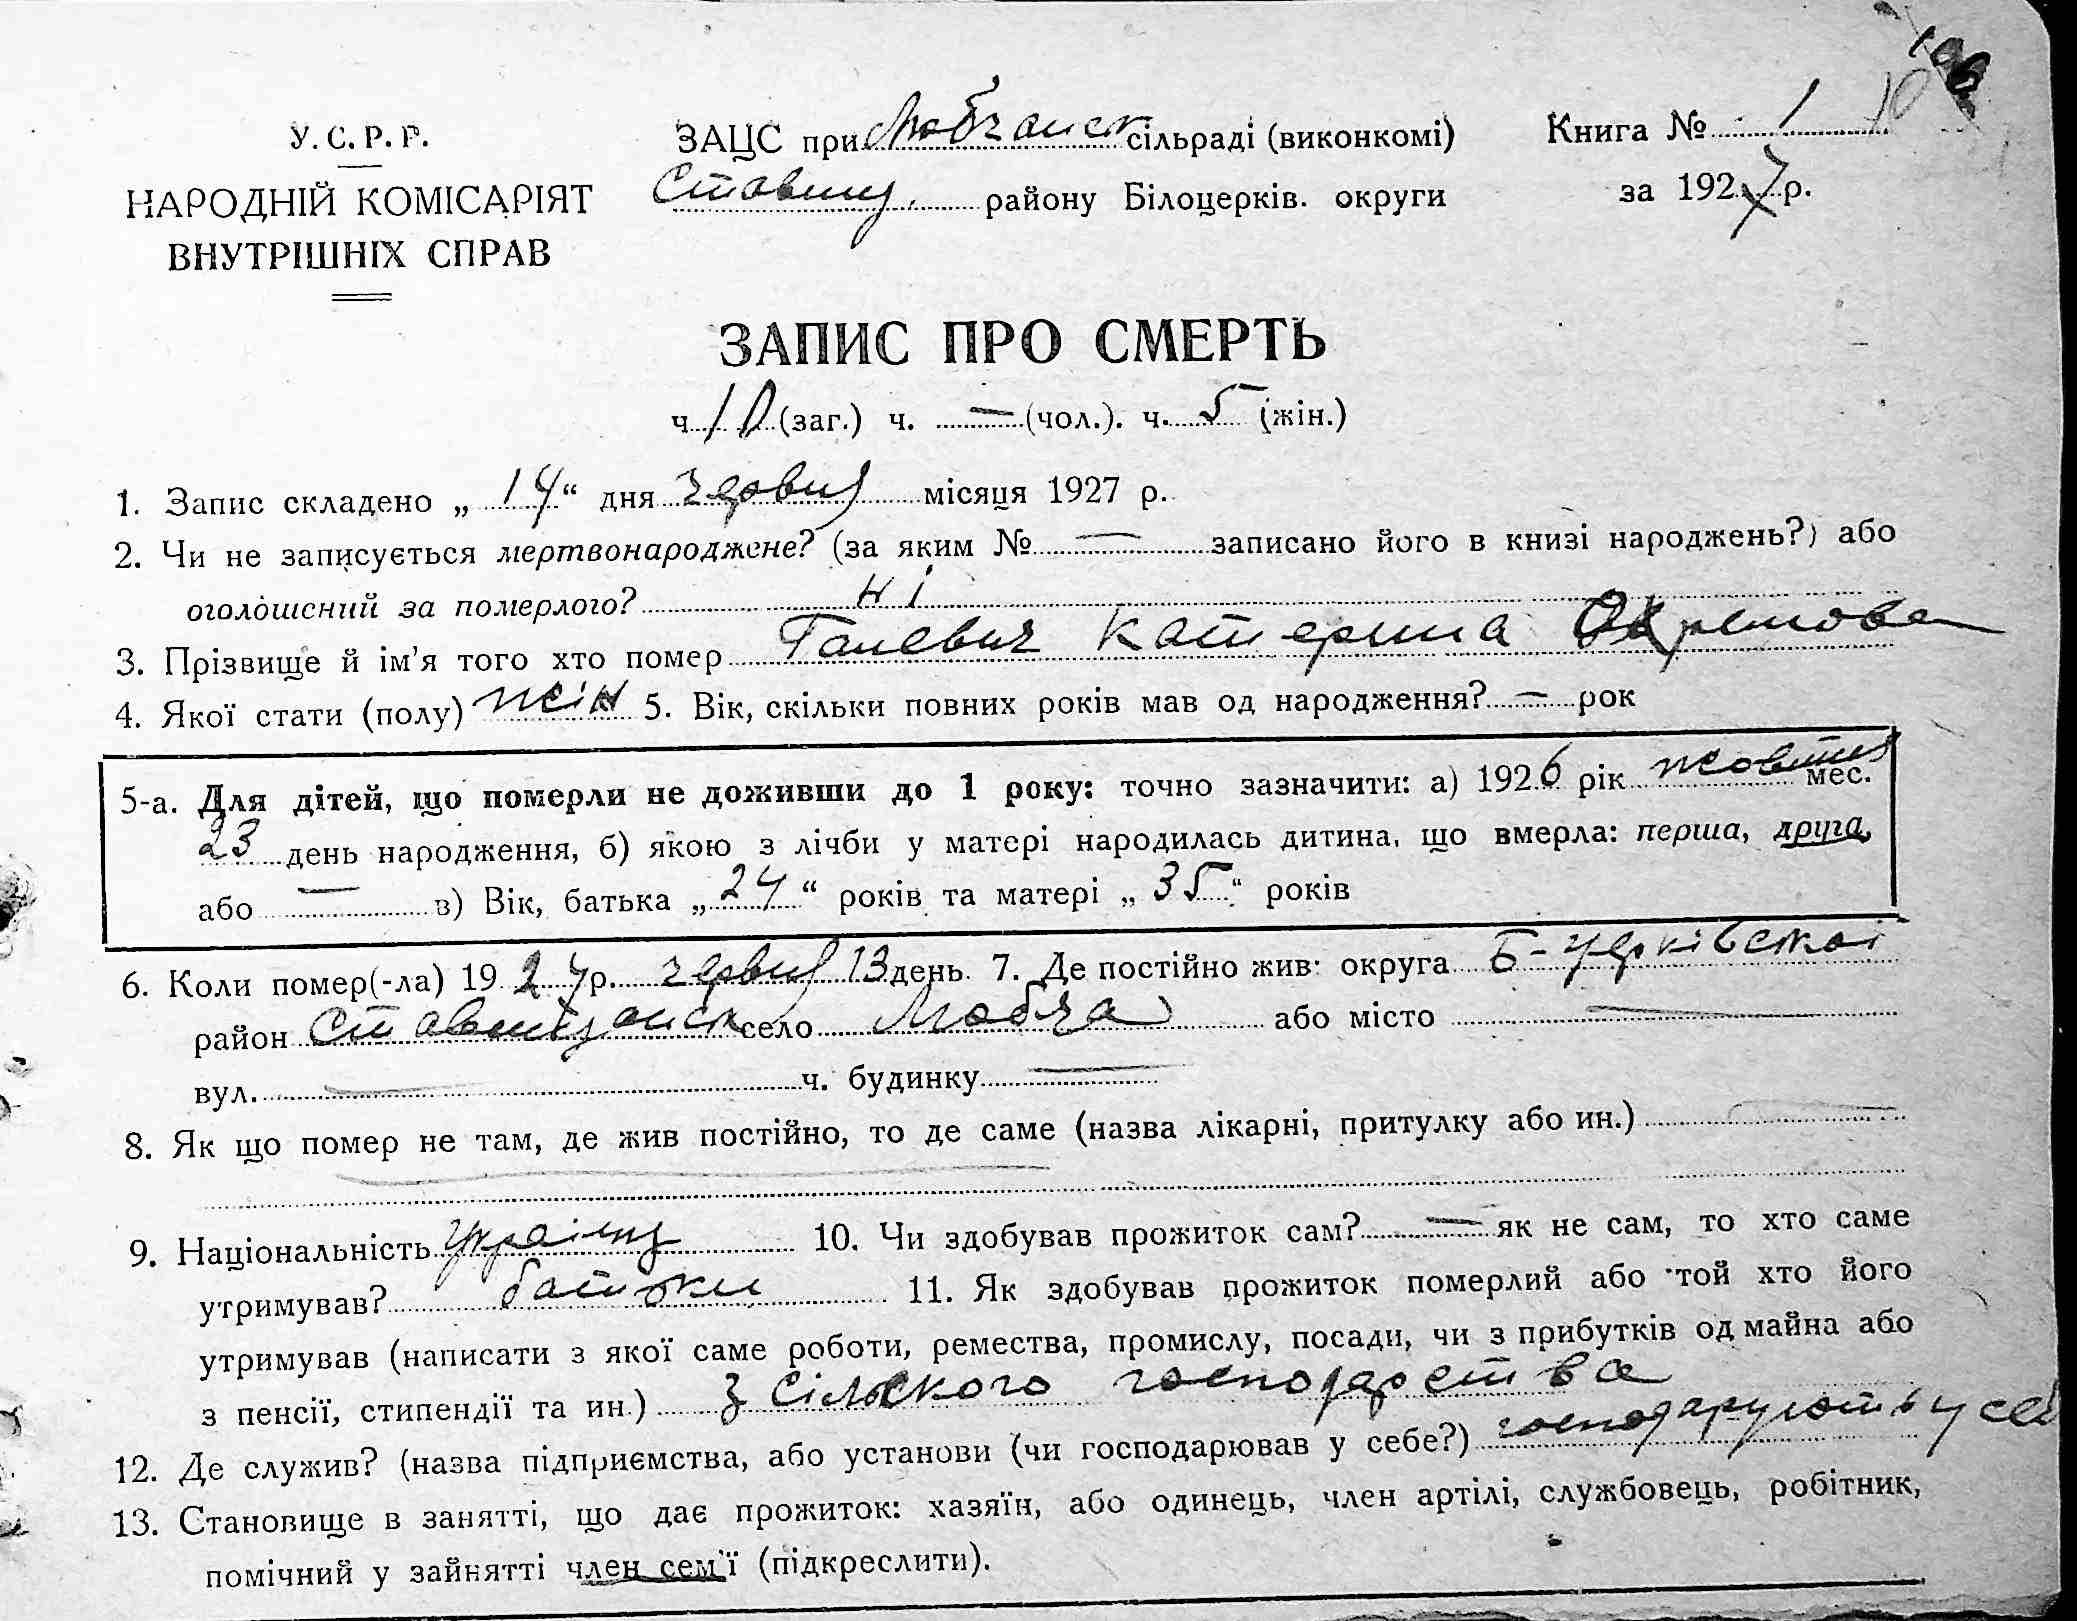 106
10
У. С. Р. Р.
НАРОДНІЙ КОМІСАРІЯТ
ВНУТРІШНІХ СПРАВ
ЗАЦС при Любчанск сільраді (виконкомі)
Ставищ. району Білоцерків. округи
Книга № 1
за 1927 р.
ЗАПИС ПРО СМЕРТЬ
ч 10 (заг.) ч. — (чол.). ч. 5 (жін.)
1. Запис складено „ 14 “ дня червня місяця 1927 р.
2. Чи не записується мертвонароджене? (за яким № — записано його в книзі народжень?) або
оголошений за померлого? ні
3. Прізвище й ім'я того хто помер Галевич Катерина Охремова
4. Якої стати (полу) жін 5. Вік, скільки повних років мав од народження? — рок
5-а. Для дітей, що померли не доживши до 1 року: точно зазначити: а) 1926 рік жовтня мес.
23 день народження, б) якою з лічби у матері народилась дитина, що вмерла: перша, друга,
або — в) Вік, батька „ 24 “ років та матері „ 35 “ років
6. Коли помер(-ла) 1927 р. червня 13 день. 7. Де постійно жив: округа Б-Церківської
район Ставищанськ село Любча або місто —
вул. — ч. будинку —
8. Як що помер не там, де жив постійно, то де саме (назва лікарні, притулку або ин.) —
9. Національність україн. 10. Чи здобував прожиток сам? — як не сам, то хто саме
утримував? батьки 11. Як здобував прожиток померлий або той хто його
утримував (написати з якої саме роботи, ремества, промислу, посади, чи з прибутків од майна або
з пенсії, стипендії та ин.) з сільского господарства
12. Де служив? (назва підприємства, або установи (чи господарював у себе?) господарують у себ
13. Становище в занятті, що дає прожиток: хазяїн, або одинець, член артілі, службовець, робітник,
помічний у зайнятті член сем'ї (підкреслити).